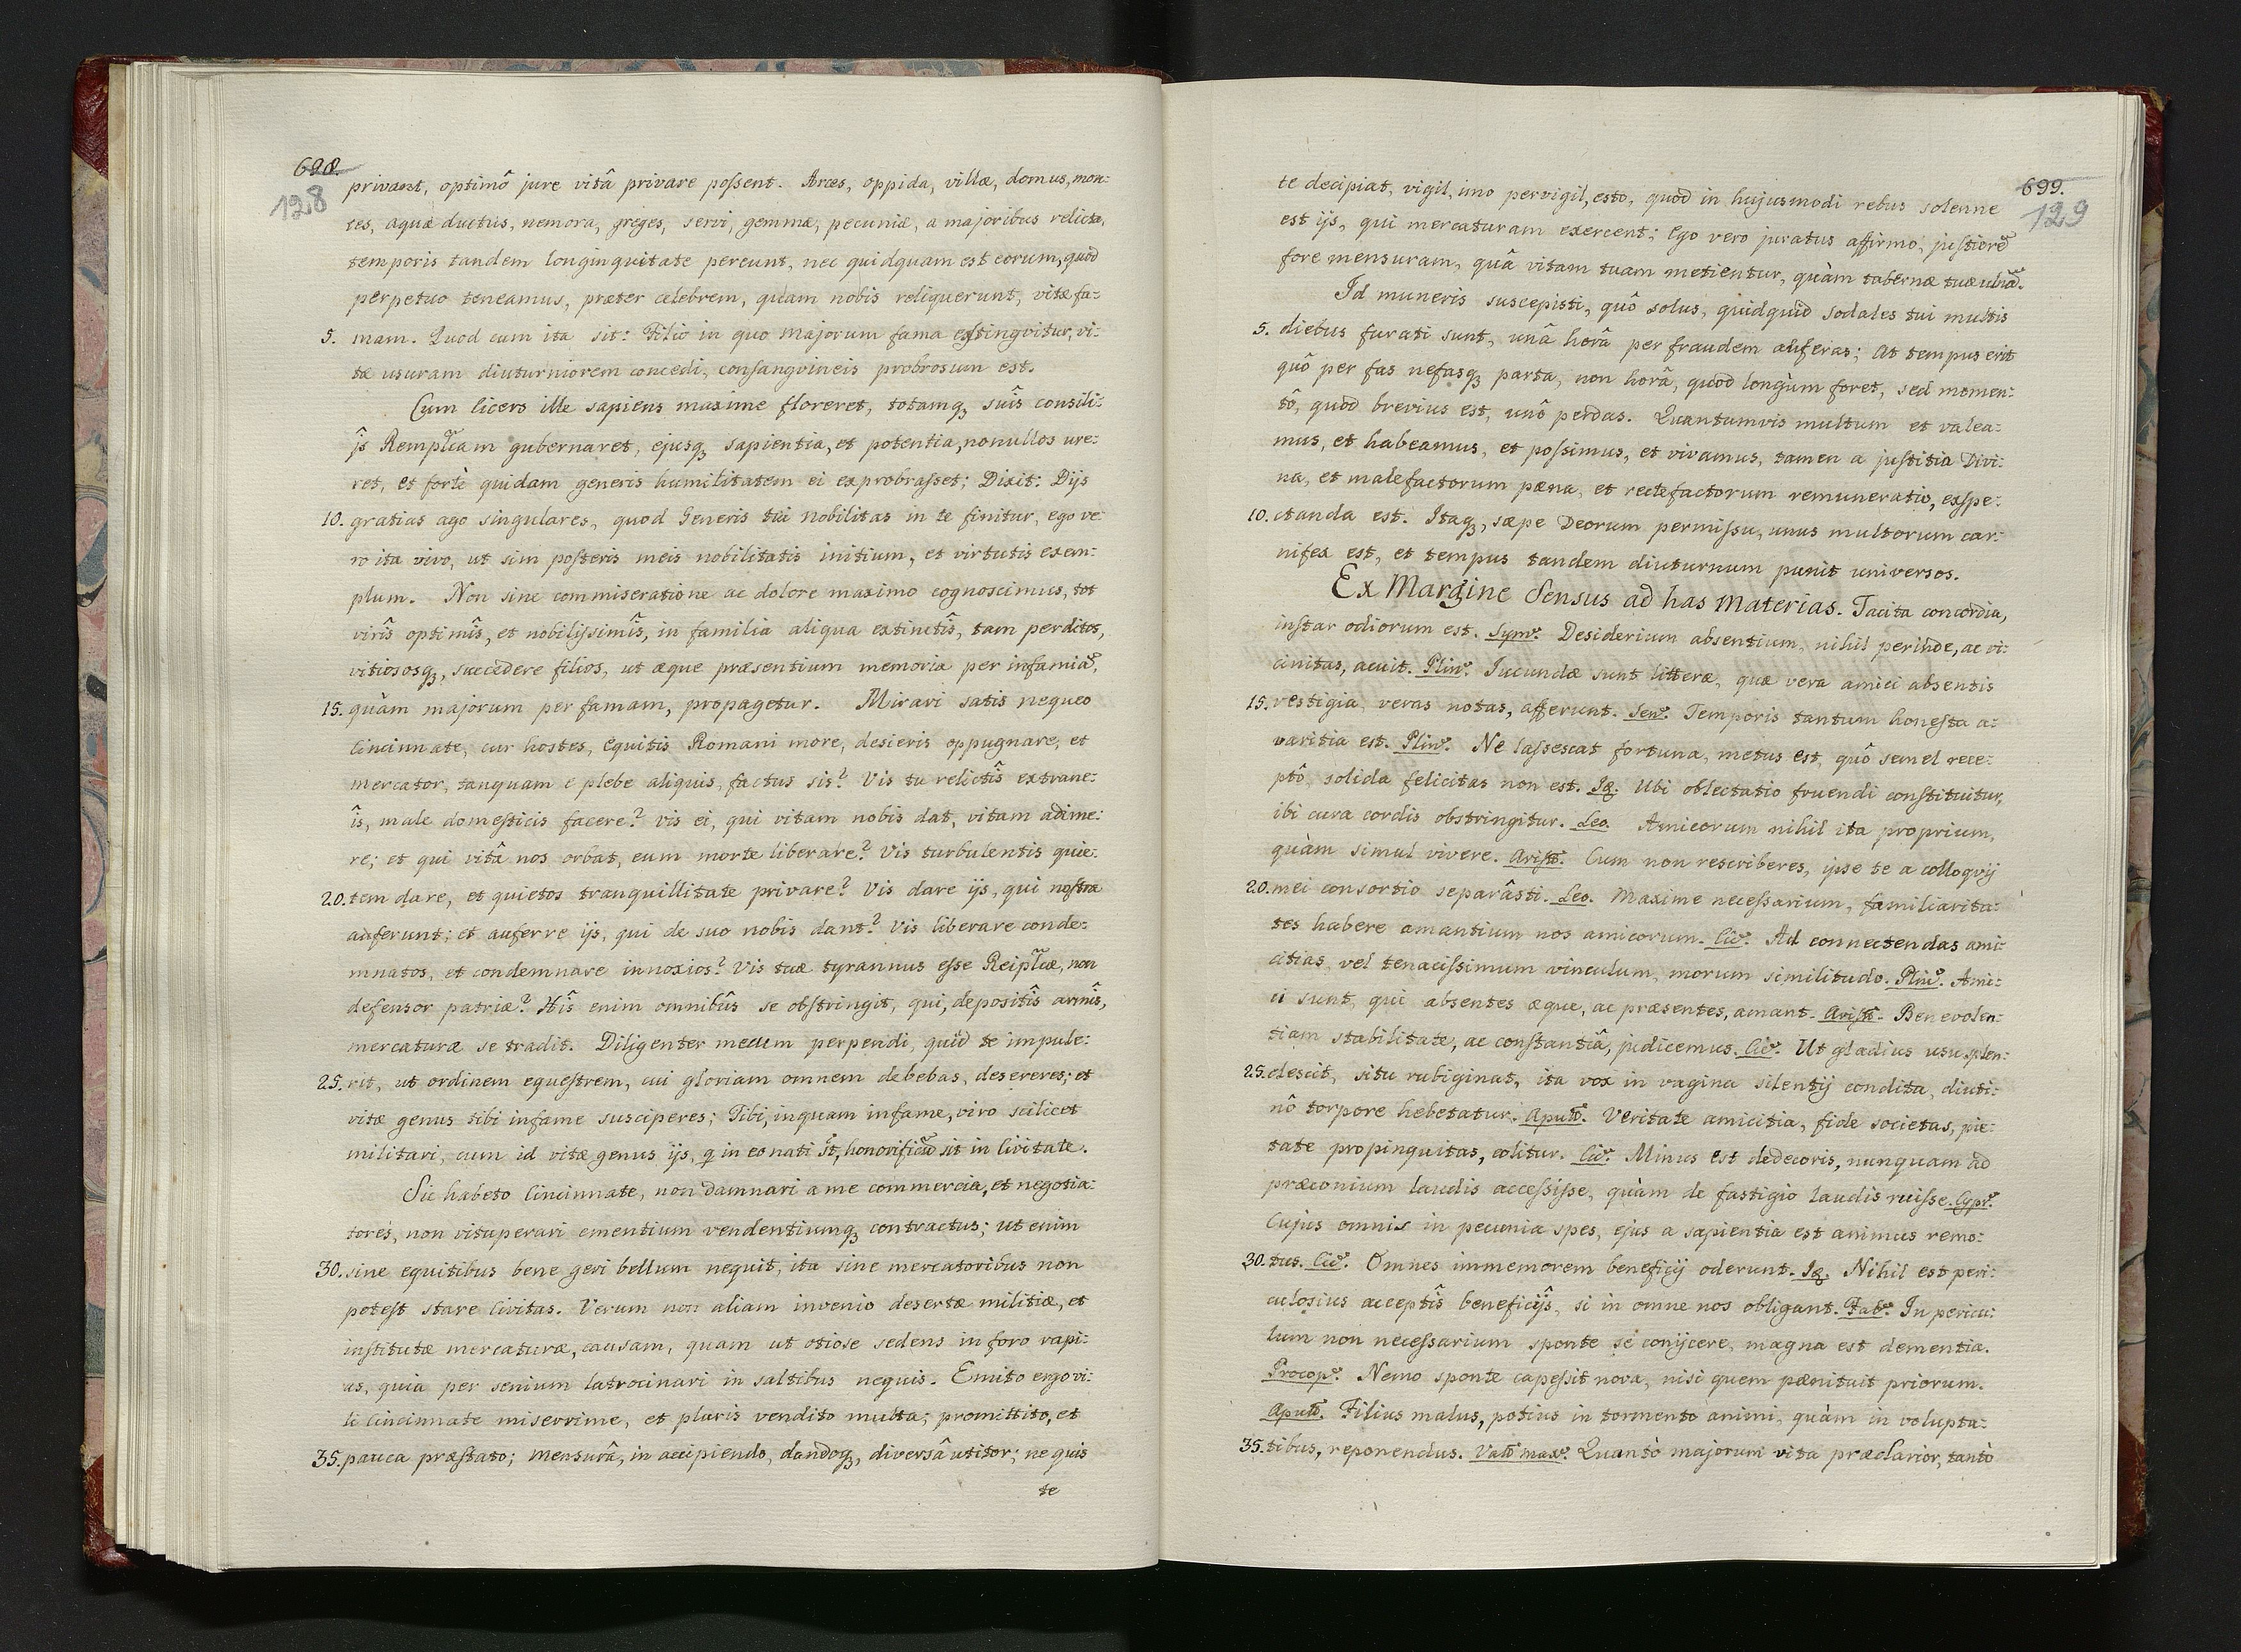 698.
128
privant, optimô jure vitâ privare possent. Arces, oppida, villæ, domus, mon:
tes, aquæ ductus, nemora, greges, servi, gemmæ, pecuniæ, a majoribus relicta,
temporis tandem longinquitate pereunt, nec quidquam est eorum, quod
perpetuo teneamus, præter celebrem, quam nobis reliquerunt, vitæ fa:
5. mam. Quod cum ita sit: Filio in quo majorum fama exstingvitur, vi:
tæ usuram diuturniorem concedi, consangvineis probrosum est.
Cum Cicero ille sapiens maxime floreret, totamqȝ suîs consili:
îjs Rempl͠cam gubernaret, ejusqȝ sapientia, et potentia, nonullos ure:
ret, et fortè quidam generis humilitatem ei exprobrasset; Dixit: Dijs
10. gratias ago singulares, quod Generis tui nobilitas in te finitur, ego ve:
ro ita vivo, ut sim posteris meis nobilitatis initium, et virtutis exem:
plum. Non sine commiseratione ac dolore maximo cognoscimus, tot
virîs optimîs, et nobilissimîs, in familia aliqua extinctîs, tam perditos,
vitiososqȝ, succedere filios, ut æque præsentium memoria per infamiã,
15. quàm majorum per famam, propagetur. Mirari satis nequeo
Cincinnate, cur hostes, Equitis Romani more, desieris oppugnare, et
mercator, tanquam e plebe aliquis, factus sis? Vis tu relictîs extrane:
îs, male domesticis facere? Vis ei, qui vitam nobis dat, vitam adime:
re; et qui vitâ nos orbat, eum morte liberare? Vis turbulentis quie:
20. tem dare, et quietos tranquillitate privare? Vis dare ijs, qui nostra
auferunt; et auferre ijs, qui de suo nobis dant? Vis liberare conde:
mnatos, et condemnare innoxios? Vis tuæ tyrannus esse Reipl͠cæ, non
defensor patriæ? Hîs enim omnibûs se obstringit, qui, depositîs armîs,
mercaturæ se tradit. Diligenter mecum perpendi, quid te impule:
25. rit, ut ordinem equestrem, cui gloriam omnem debebas, desereres; et
vitæ genus tibi infame susciperes; Tibi, inquam infame, viro scilicet
militari, cum id vitæ genus ijs, q̃ in eo nati st̃, honorificũ sit in Civitate.
Sic habeto Cincinnate, non damnari a me commercia, et negotia:
tores, non vituperari ementium vendentiumqȝ contractus; ut enim
30. sine equitibus bene geri bellum nequit, ita sine mercatoribus non
potest stare Civitas. Verum non aliam invenio desertæ militiæ, et
institutæ mercaturæ, causam, quam ut otiose sedens in foro rapi:
as, quia per senium latrocinari in saltibus nequis. Emito ergo vi:
li Cincinnate miserrime, et pluris vendito multa; promittito, et
35. pauca præstato; mensurâ, in accipiendo, dandoqȝ, diversâ utitor; ne quis
te
699.
129
te decipiat, vigil, imo pervigil, esto, quod in hujusmodi rebus solenne
est ijs, qui mercaturam exercent; Ego vero juratus affirmo, justiorẽ
fore mensuram, quâ vitam tuam metientur, quàm tabernæ tuæ ulnã.
Id muneris suscepisti, quô solus, quidquid sodales tui multis
5. diebus furati sunt, unâ horâ per fraudem auferas; At tempus erit
quô per fas nefasqȝ parta, non horâ, quod longùm foret, sed momen:
tô, quod brevius est, unô perdas. Quantumvis multum et valea:
mus, et habeamus, et possimus, et vivamus, tamen a justitia Divi:
na, et malefactorum pæna, et rectefactorum remuneratio, exspe:
10. ctanda est. Itaqȝ, sæpe Deorum permissu, unus multorum car:
nifex est, et tempus tandem diuturnum punit universos.
Ex Margine Sensus ad has Materias. Tacita concordia,
instar odiorum est. Sym͠. Desiderium absentium, nihil perinde, ac vi:
cinitas, acuit. Plin͠. Jucundæ sunt litteræ, quæ vera amici absentis
15. vestigia, veras notas, afferunt. Sen͠. Temporis tantum honesta a:
varitia est. Plin͠. Ne lassescat fortuna, metus est, quô semel rece:
ptô, solida felicitas non est. Iꝗ. Ubi oblectatio fruendi constituitur,
ibi cura cordis obstringitur. Leo. Amicorum nihil ita proprium,
quàm simul vivere. Arist͠. Cum non rescriberes, ipse te a colloqvij
20. mei consortio separâsti. Leo. Maxime necessarium, familiarita:
tes habere amantium nos amicorum. Cic͠. Ad connectendas ami:
citias, vel tenacissimum vinculum, morum similitudo. Plin͠. Ami:
ci sunt, qui absentes æque, ac præsentes, amant. Arist͠. Benevolen:
tiam stabilitate, ac constantiâ, judicemus. Cic͠. Ut gladius usu splen:
25. descit, situ rubiginat, ita vox in vagina silentij condita, diuti:
nô torpore hebetatur. Apul͠. Veritate amicitia, fide societas, pie:
tate propinquitas, colitur. Cic͠. Minus est dedecoris, nunquam ad
præconium laudis accessisse, quàm de fastigio laudis ruisse. Cypr͠.
Cujus omnis in pecunia spes, ejus a sapientia est animus remo:
30. tus. Cic͠. Omnes immemorem beneficij oderunt. Iꝗ. Nihil est peri:
culosius acceptîs beneficijs, si in omne nos obligant. Fab͠. In pericu:
lum non necessarium sponte se conijcere, magna est dementia.
Procop͠. Nemo sponte capessit nova, nisi quem pænituit priorum.
Apul͠. Filius malus, potius in tormento animi, quàm in volupta:
35. tibus, reponendus. Val͠ max͠. Quantò majorum vita præclarior, tantò